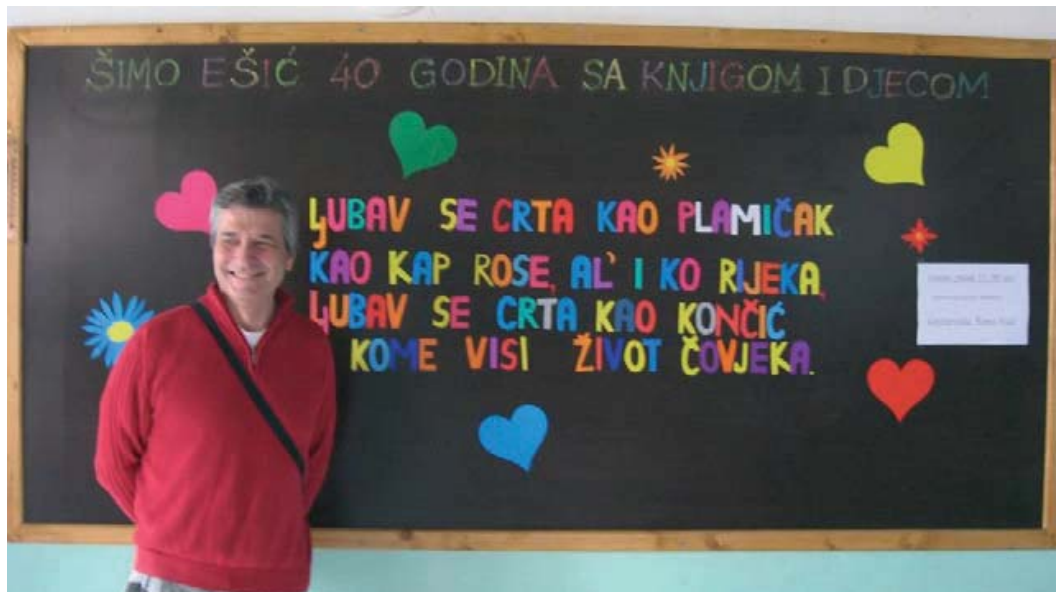 ŠIMO EŠIĆ 40 GODINA SA KNJIGOM I DJECOM
LJUBAV SE CRTA KAO PLAMIČAK
KAO KAP ROSE, AL' I KO RIJEKA,
LJUBAV SE CRTA KAO KONČIĆ
KOME VISI ŽIVOT ČOVJEKA.